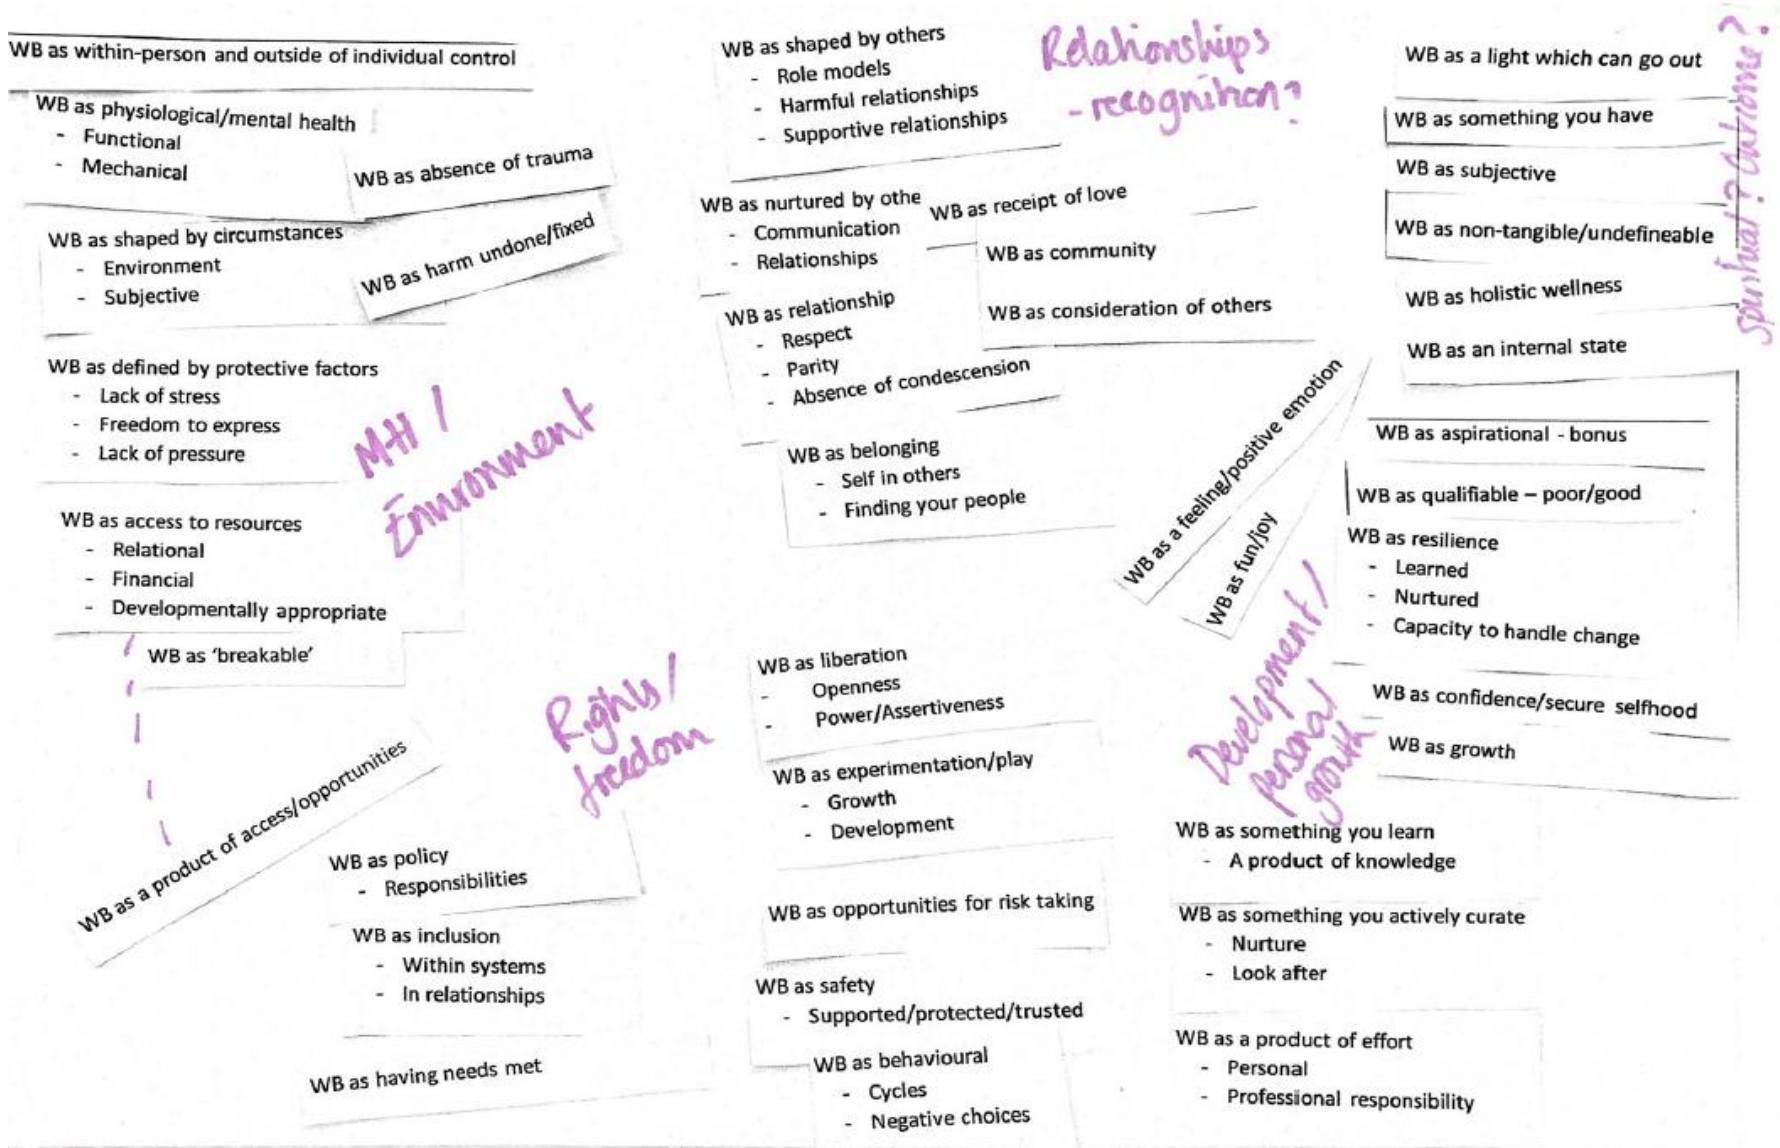 WB as within-person and outside of individual control
WB as physiological/mental health
- Functional
- Mechanical
WB as absence of trauma
WB as shaped by circumstances
- Environment
- Subjective
WB as harm undone/fixed
WB as defined by protective factors
- Lack of stress
- Freedom to express
- Lack of pressure
MH /
Environment
WB as access to resources
- Relational
- Financial
- Developmentally appropriate
WB as 'breakable'
WB as a product of access/opportunities
Rights/
freedom
WB as policy
- Responsibilities
WB as inclusion
- Within systems
- In relationships
WB as having needs met
WB as shaped by others
- Role models
- Harmful relationships
- Supportive relationships
Relationships
- recognition?
WB as nurtured by othe
- Communication
- Relationships
WB as receipt of love
WB as community
WB as relationship
- Respect
- Parity
- Absence of condescension
WB as consideration of others
WB as belonging
- Self in others
- Finding your people
WB as a feeling/positive emotion
WB as fun/joy
WB as liberation
- Openness
- Power/Assertiveness
WB as experimentation/play
- Growth
- Development
WB as opportunities for risk taking
WB as safety
- Supported/protected/trusted
WB as behavioural
- Cycles
- Negative choices
WB as a light which can go out
WB as something you have
WB as subjective
WB as non-tangible/undefineable
WB as holistic wellness
WB as an internal state
Spiritual? Outcome?
WB as aspirational - bonus
WB as qualifiable – poor/good
WB as resilience
- Learned
- Nurtured
- Capacity to handle change
WB as confidence/secure selfhood
WB as growth
Development/
personal
growth
WB as something you learn
- A product of knowledge
WB as something you actively curate
- Nurture
- Look after
WB as a product of effort
- Personal
- Professional responsibility